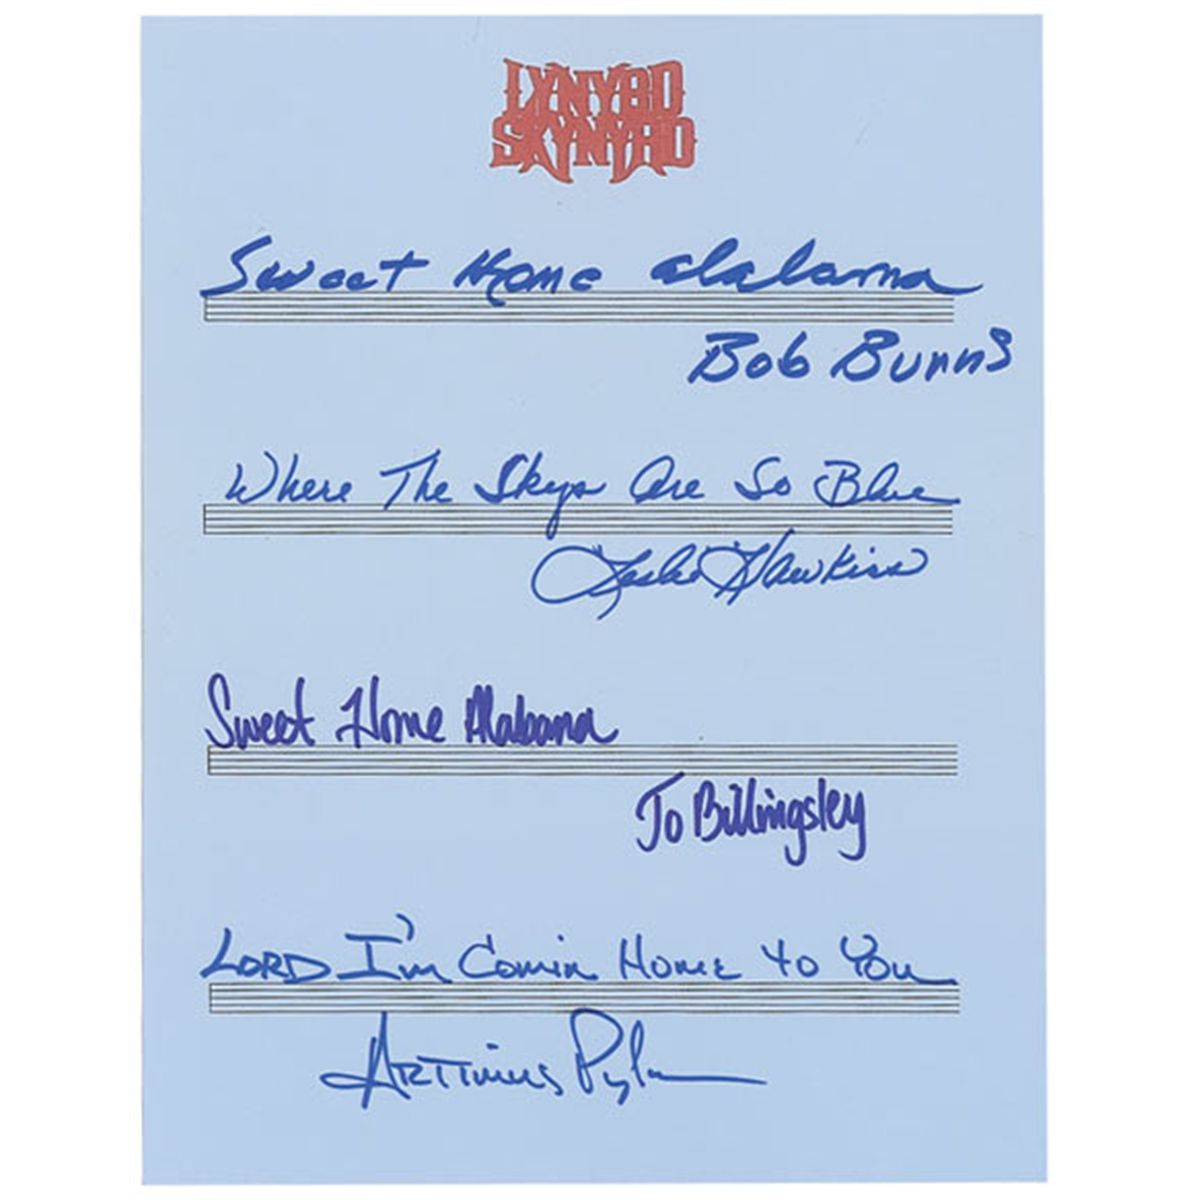 LYNYRD
SKYNYRD
Sweet Home Alabama
Bob Burns
Where The Skys Are So Blue
Leslie Hawkins
Sweet Home Alabama
Jo Billingsley
LORD I'm Comin Home to You
ARTIMUS Pyle